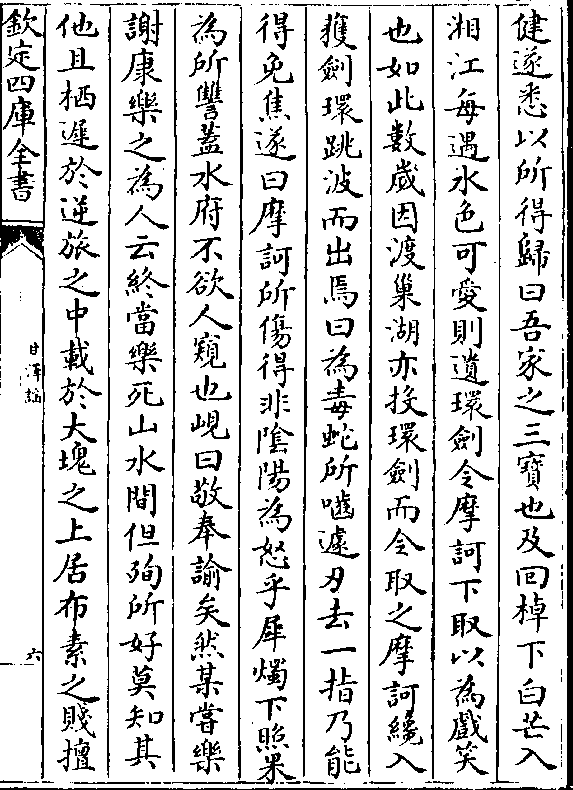 健遂悉以所得歸曰吾家之三寶也及回棹下白芒入
湘江每遇水色可愛則遺環劍令摩訶下取以為戲笑
也如此數歲因渡巢湖亦投環劍而令取之摩訶纔入
獲劍環跳波而出焉曰為毒蛇所嚙遽刃去一指乃能
得免焦遂曰摩訶所傷得非陰陽為怒乎犀燭下照果
為所讐蓋水府不欲人窺也峴曰敬奉諭矣然某嘗樂
謝康樂之為人云終當樂死山水間但殉所好莫知其
他且栖遲於逆旅之中載於大塊之上居布素之賤擅
欽定四庫全書
甘澤謠
六